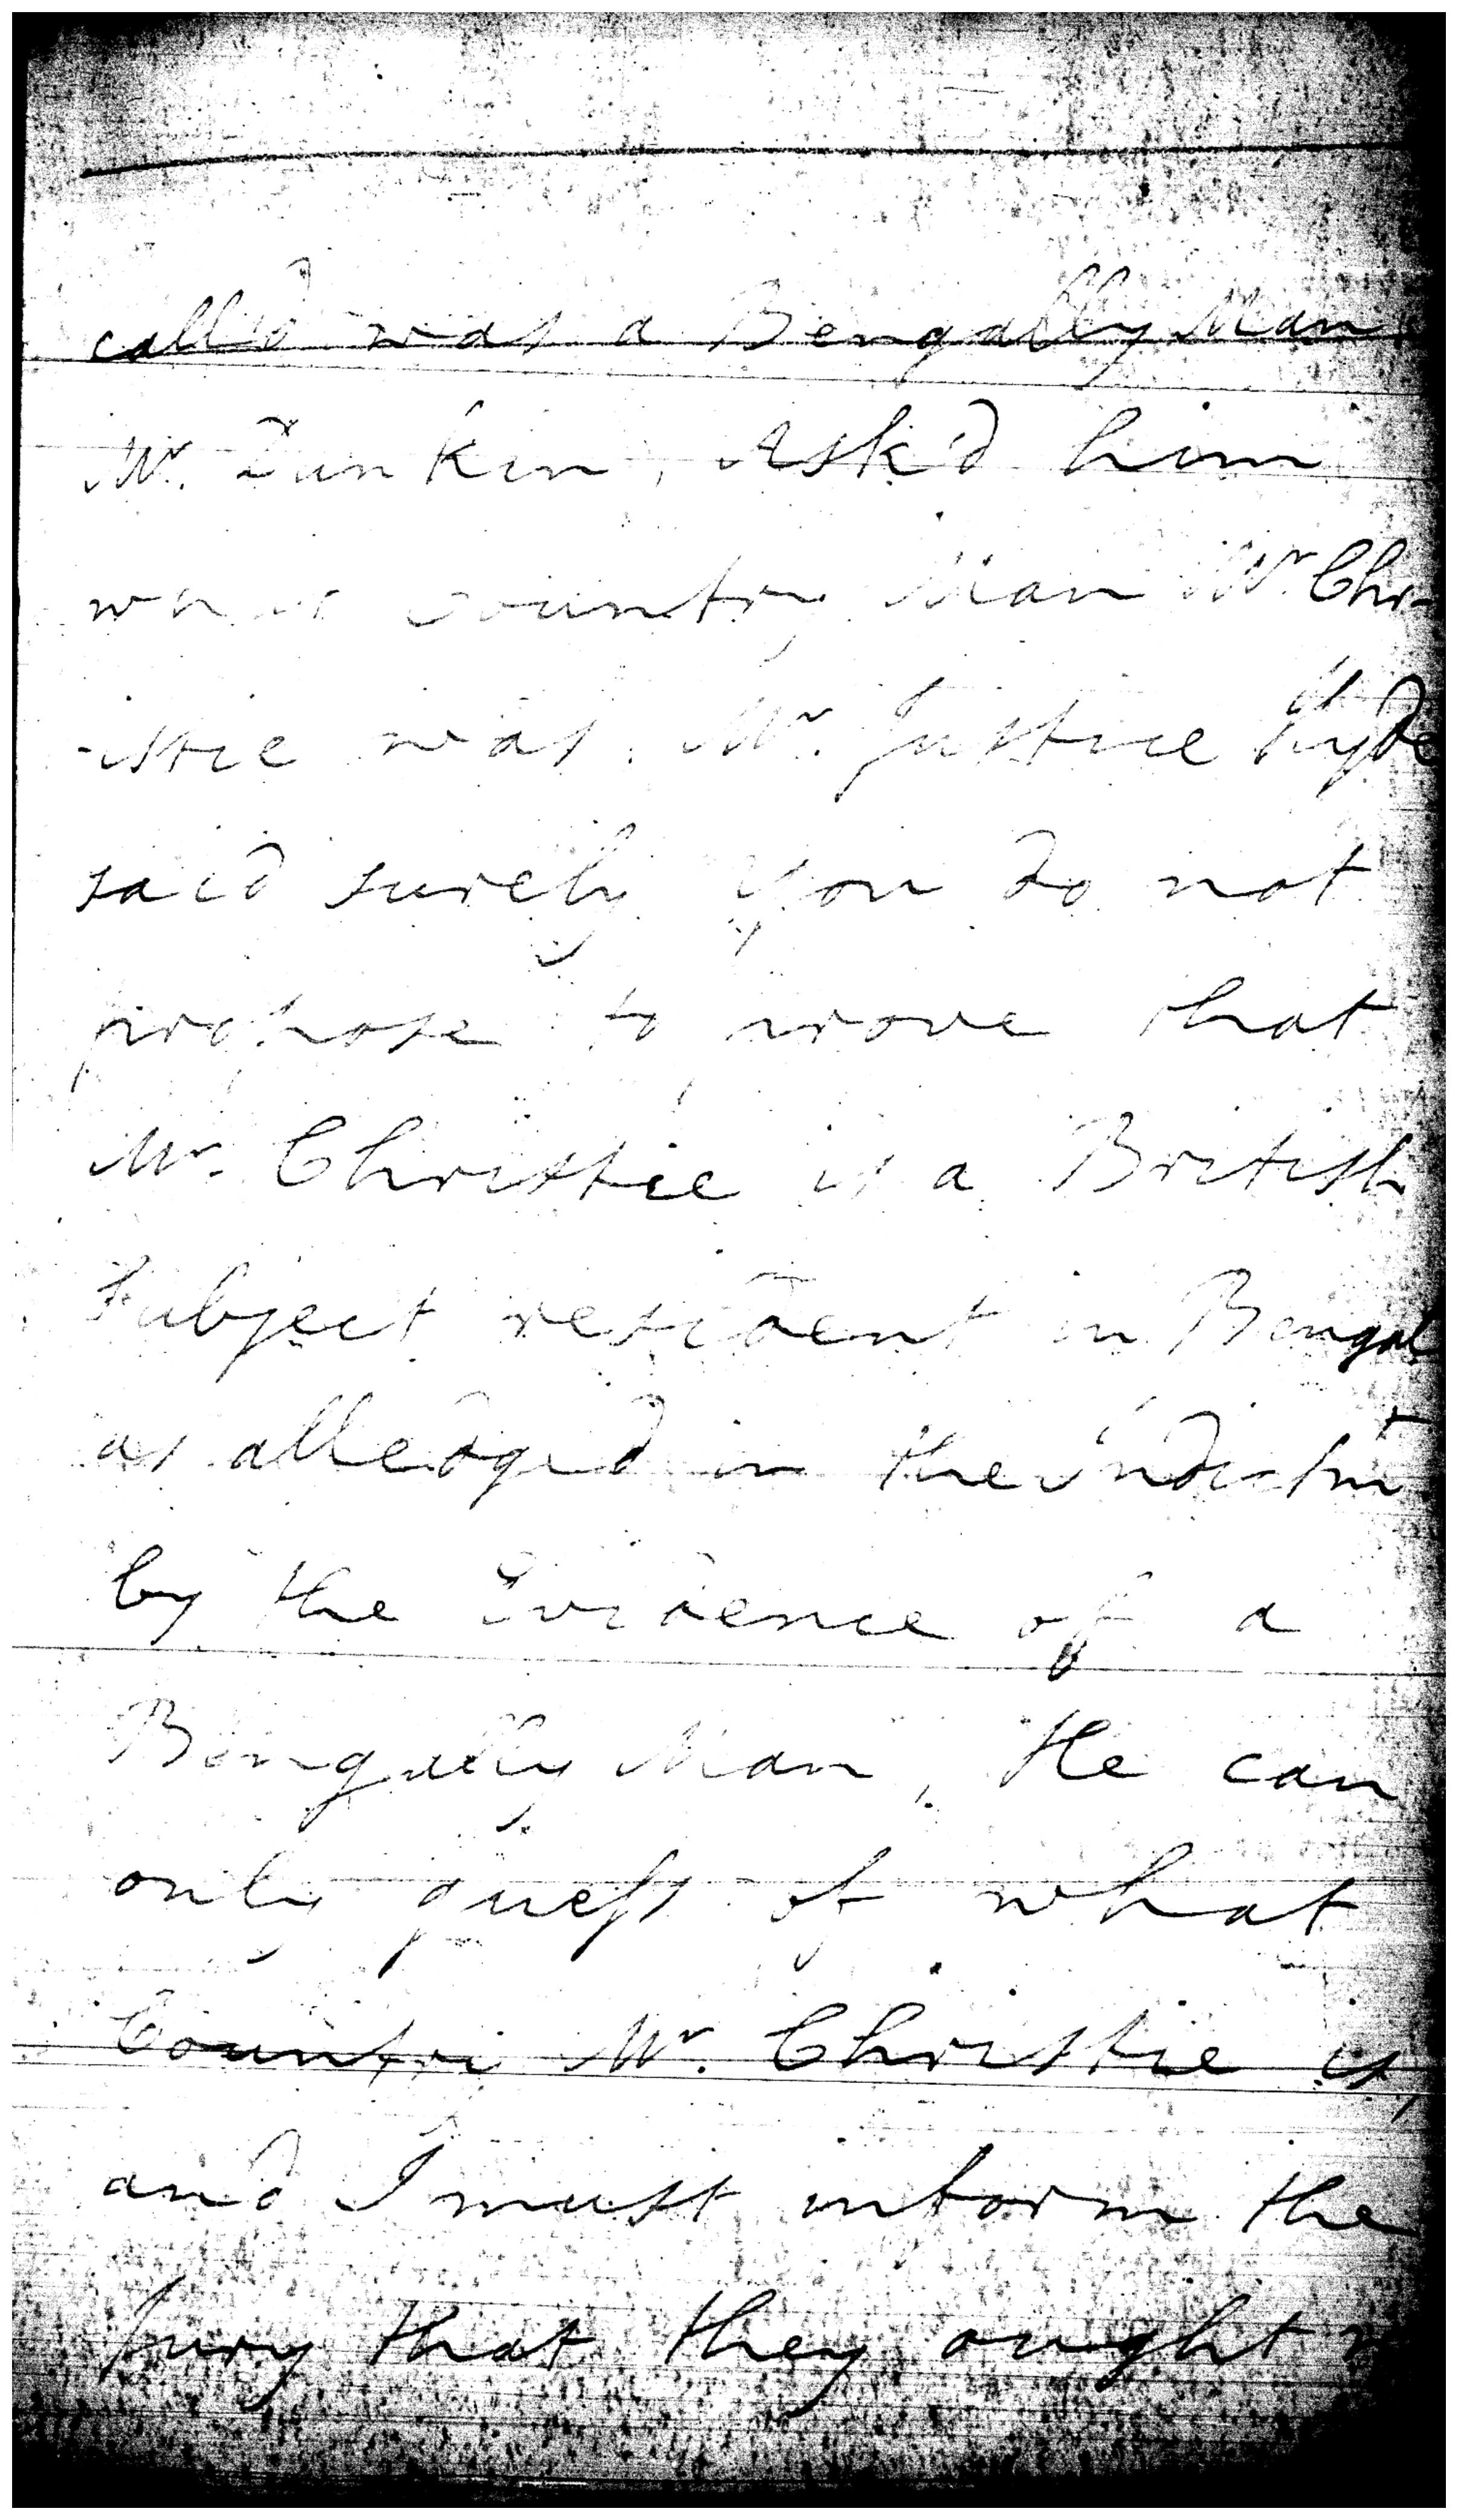 call'd was a Bengally Man
Mr. Dunkin, Ask'd him
what country Man Mr. Chr-
-istie was. Mr. Justice Hyde
said surely you do not
propose to prove that
Mr. Christie is a British
Subject resident in Bengal
as alledged in the indictmt
by the Evidence of a
Bengally Man, He can
only guess of what
Country Mr. Christie is,
and I must inform the
Jury that they ought